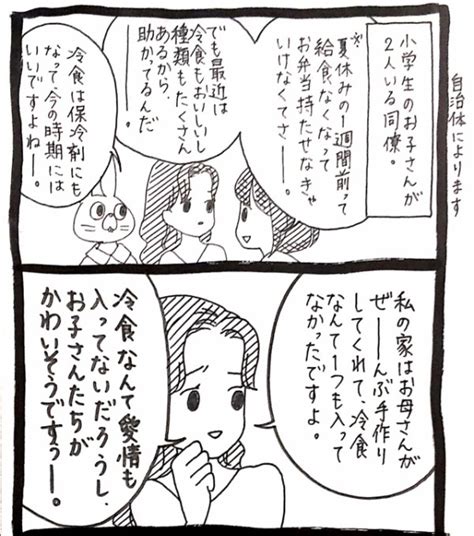 小学生のお子さんが
2人いる同僚。
自治体によります
夏休みの1週間前って
給食なくなって
お弁当持たせなきゃ
いけなくてさー。
でも最近は
冷食もおいしいし
種類もたくさん
あるから、
助かってるんだ
冷食は保冷剤にも
なって今の時期には
いいですよねー。
私の家はお母さんが
ぜーーんぶ手作り
してくれて、冷食
なんて1つも入って
なかったですよ。
冷食なんて愛情も
入ってないだろうし、
お子さんたちが
かわいそうですぅー。